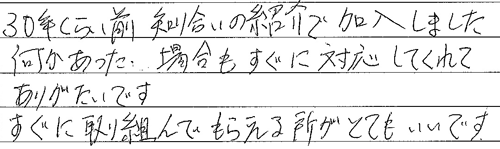 30年くらい前 知り合いの紹介で加入しました
何かあった.場合もすぐに対応してくれて
ありがたいです
すぐに取り組んでもらえる所がとてもいいです